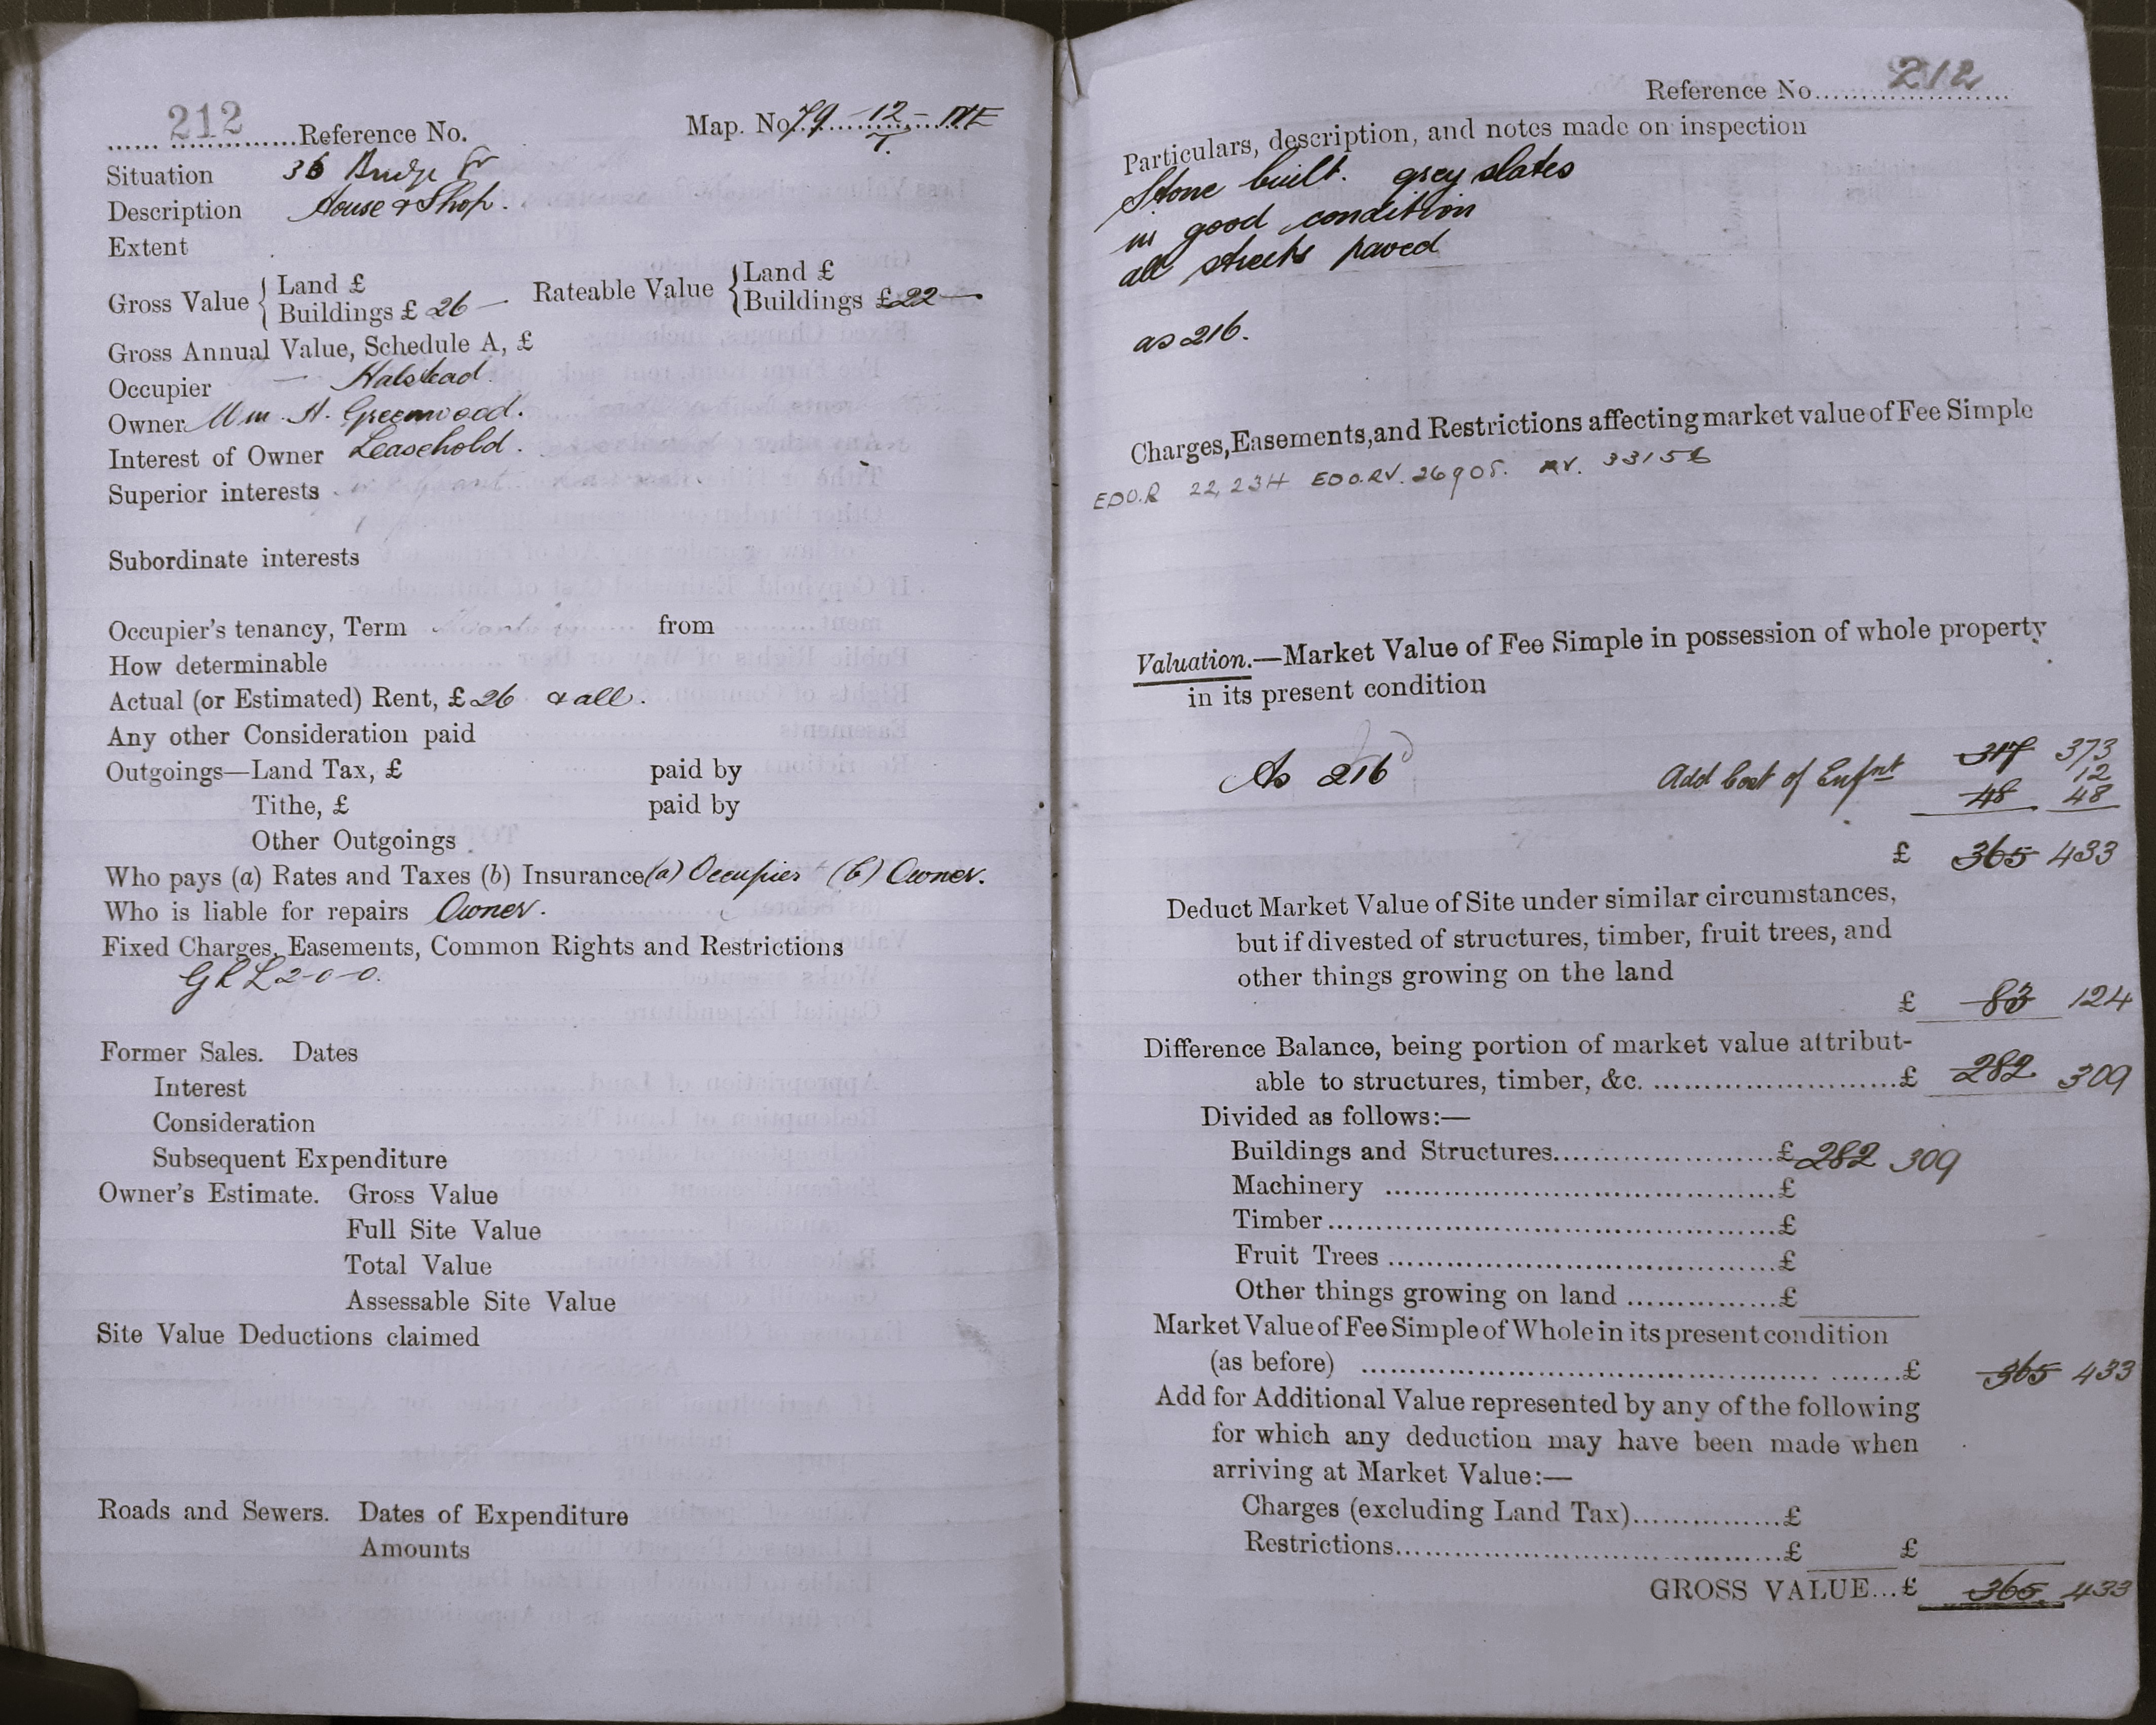 212 Reference No. Map. No 79 - 12 -
Situation 36 Bridge St
Description House & Shop.
Extent
Gross Value { Land £ Rateable Value { Land £
Buildings £ 26 — Buildings £ 22 —
Gross Annual Value, Schedule A, £
Occupier — Halstead.
Owner Wm. H. Greenwood.
Interest of Owner Leasehold.
Superior interests
Subordinate interests
Occupier's tenancy, Term from
How determinable
Actual (or Estimated) Rent, £ 26 & all.
Any other Consideration paid
Outgoings—Land Tax, £ paid by
Tithe, £ paid by
Other Outgoings
Who pays (a) Rates and Taxes (b) Insurance (a) Occupier (b) Owner.
Who is liable for repairs Owner.
Fixed Charges, Easements, Common Rights and Restrictions
G R £2-0-0.
Former Sales. Dates
Interest
Consideration
Subsequent Expenditure
Owner's Estimate. Gross Value
Full Site Value
Total Value
Assessable Site Value
Site Value Deductions claimed
Roads and Sewers. Dates of Expenditure
Amounts
Reference No. 212
Particulars, description, and notes made on inspection
Stone built. grey slates
in good condition
all streets paved
as 216.
Charges, Easements, and Restrictions affecting market value of Fee Simple
EDO.R 22,234 EDO.RV. 26908. RV. 33156
Valuation.—Market Value of Fee Simple in possession of whole property
in its present condition
317 373
12
As 216 Add Cost of Enfnt 48 48
£ 365 433
Deduct Market Value of Site under similar circumstances,
but if divested of structures, timber, fruit trees, and
other things growing on the land
£ 83 124
Difference Balance, being portion of market value attribut-
able to structures, timber, &c. £ 282 309
Divided as follows:—
Buildings and Structures £ 282 309
Machinery £
Timber £
Fruit Trees £
Other things growing on land £
Market Value of Fee Simple of Whole in its present condition
(as before) £ 365 433
Add for Additional Value represented by any of the following
for which any deduction may have been made when
arriving at Market Value:—
Charges (excluding Land Tax) £
Restrictions £ £
GROSS VALUE... £ 365 433